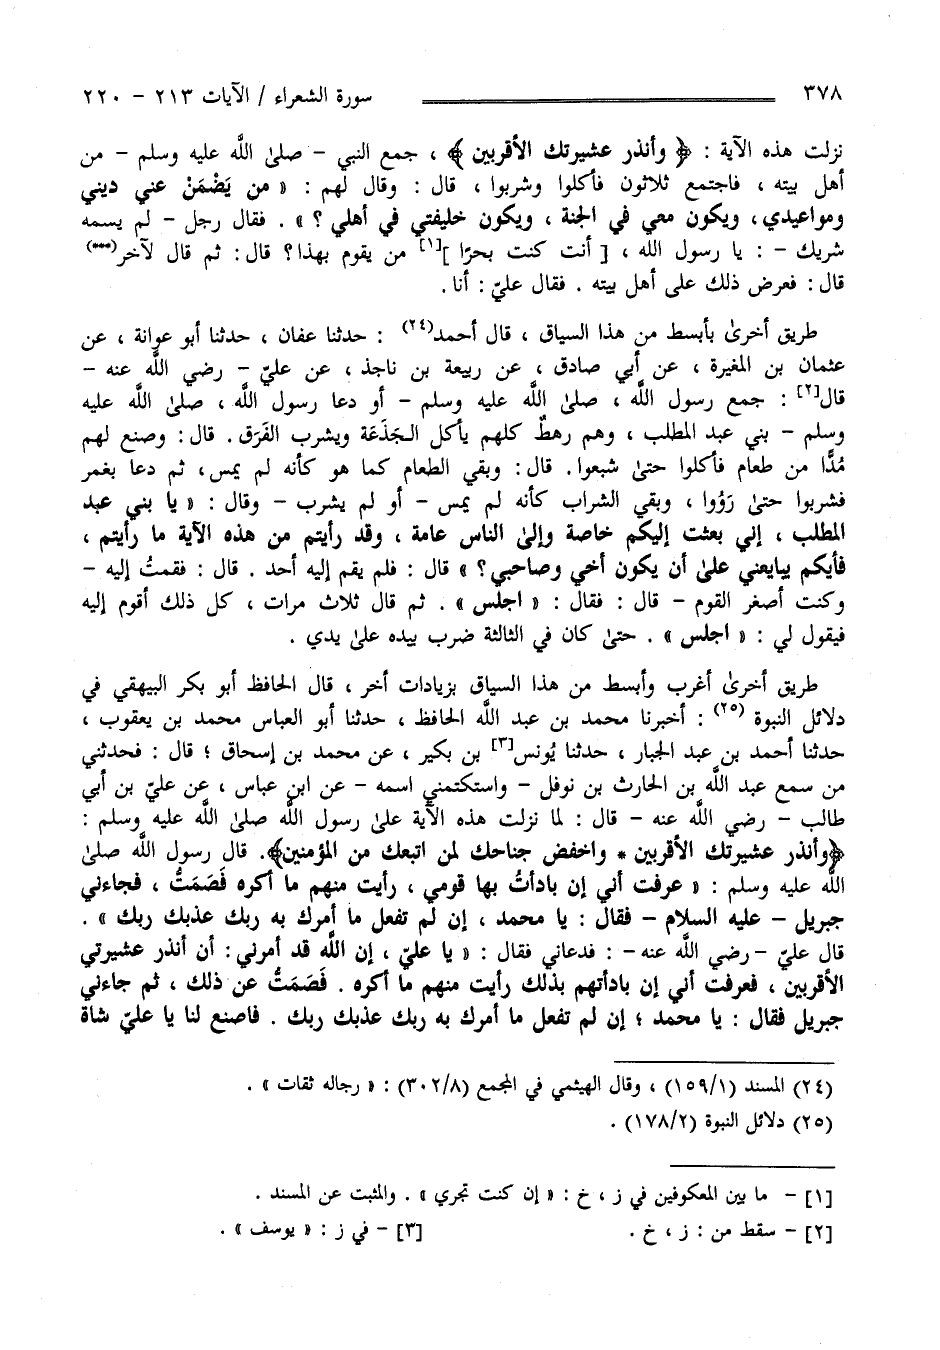 ٣٧٨ سورة الشعراء / الآيات ٢١٣ - ٢٢٠
نزلت هذه الآية : ﴿ وأنذر عشيرتك الأقربين ﴾ ، جمع النبي - صلىٰ اللَّه عليه وسلم - من
أهل بيته ، فاجتمع ثلاثون فأكلوا وشربوا ، قال : وقال لهم : « من يَضْمَنْ عني ديني
ومواعيدي، ويكون معي في الجنة ، ويكون خليفتي في أهلي ؟ » . فقال رجل - لم يسمه
شريك - : يا رسول الله ، [ أنت كنت بحرًا ][١] من يقوم بهذا؟ قال: ثم قال لآخر(***)
قال: فعرض ذلك على أهل بيته . فقال عليّ: أنا.
طريق أخرىٰ بأبسط من هذا السياق ، قال أحمد(٢٤) : حدثنا عفان ، حدثنا أبو عوانة ، عن
عثمان بن المغيرة ، عن أبي صادق ، عن ربيعة بن ناجذ ، عن عليّ - رضي اللَّه عنه -
قال[٢] : جمع رسول اللَّه ، صلىٰ اللَّه عليه وسلم - أو دعا رسول اللَّه ، صلىٰ اللَّه عليه
وسلم - بني عبد المطلب ، وهم رهطٌ كلهم يأكل الجَذَعَة ويشرب الفَرَق. قال: وصنع لهم
مُدًّا من طعام فأكلوا حتىٰ شبعوا. قال: وبقي الطعام كما هو كأنه لم يمس، ثم دعا بغمر
فشربوا حتىٰ رَوُوا ، وبقي الشراب كأنه لم يمس - أو لم يشرب - وقال : « يا بني عبد
المطلب ، إني بعثت إليكم خاصة وإلىٰ الناس عامة ، وقد رأيتم من هذه الآية ما رأيتم ،
فأيكم يبايعني علىٰ أن يكون أخي وصاحبي؟ » قال : فلم يقم إليه أحد . قال : فقمتُ إليه -
وكنت أصغر القوم - قال : فقال : « اجلس » . ثم قال ثلاث مرات ، كل ذلك أقوم إليه
فيقول لي : « اجلس » . حتىٰ كان في الثالثة ضرب بيده علىٰ يدي .
طريق أخرىٰ أغرب وأبسط من هذا السياق بزيادات أخر ، قال الحافظ أبو بكر البيهقي في
دلائل النبوة (٢٥) : أخبرنا محمد بن عبد اللَّه الحافظ ، حدثنا أبو العباس محمد بن يعقوب ،
حدثنا أحمد بن عبد الجبار ، حدثنا يُونس[٣] بن بكير ، عن محمد بن إسحاق ؛ قال : فحدثني
من سمع عبد اللَّه بن الحارث بن نوفل - واستكتمني اسمه - عن ابن عباس ، عن عليّ بن أبي
طالب - رضي اللَّه عنه - قال : لما نزلت هذه الآية علىٰ رسول اللَّه صلىٰ اللَّه عليه وسلم :
﴿وأنذر عشيرتك الأقربين * واخفض جناحك لمن اتبعك من المؤمنين﴾. قال رسول اللَّه صلىٰ
اللَّه عليه وسلم : « عرفت أني إن بادأتُ بها قومي ، رأيت منهم ما أكره فَصَمَتُّ ، فجاءني
جبريل - عليه السلام - فقال : يا محمد ، إن لم تفعل ما أمرك به ربك عذبك ربك » .
قال عليّ -رضي اللَّه عنه- : فدعاني فقال : « يا عليّ ، إن اللَّه قد أمرني: أن أنذر عشيرتي
الأقربين ، فعرفت أني إن بادأتهم بذلك رأيت منهم ما أكره . فَصَمَتُّ عن ذلك ، ثم جاءني
جبريل فقال : يا محمد ؛ إن لم تفعل ما أمرك به ربك عذبك ربك . فاصنع لنا يا عليّ شاة
(٢٤) المسند (١٥٩/١) ، وقال الهيثمي في المجمع (٣٠٢/٨) : « رجاله ثقات » .
(٢٥) دلائل النبوة (١٧٨/٢) .
[١] - ما بين المعكوفين في ز ، خ : « إن كنت تجري » . والمثبت عن المسند .
[٢] - سقط من : ز ، خ . [٣] - في ز : « يوسف » .